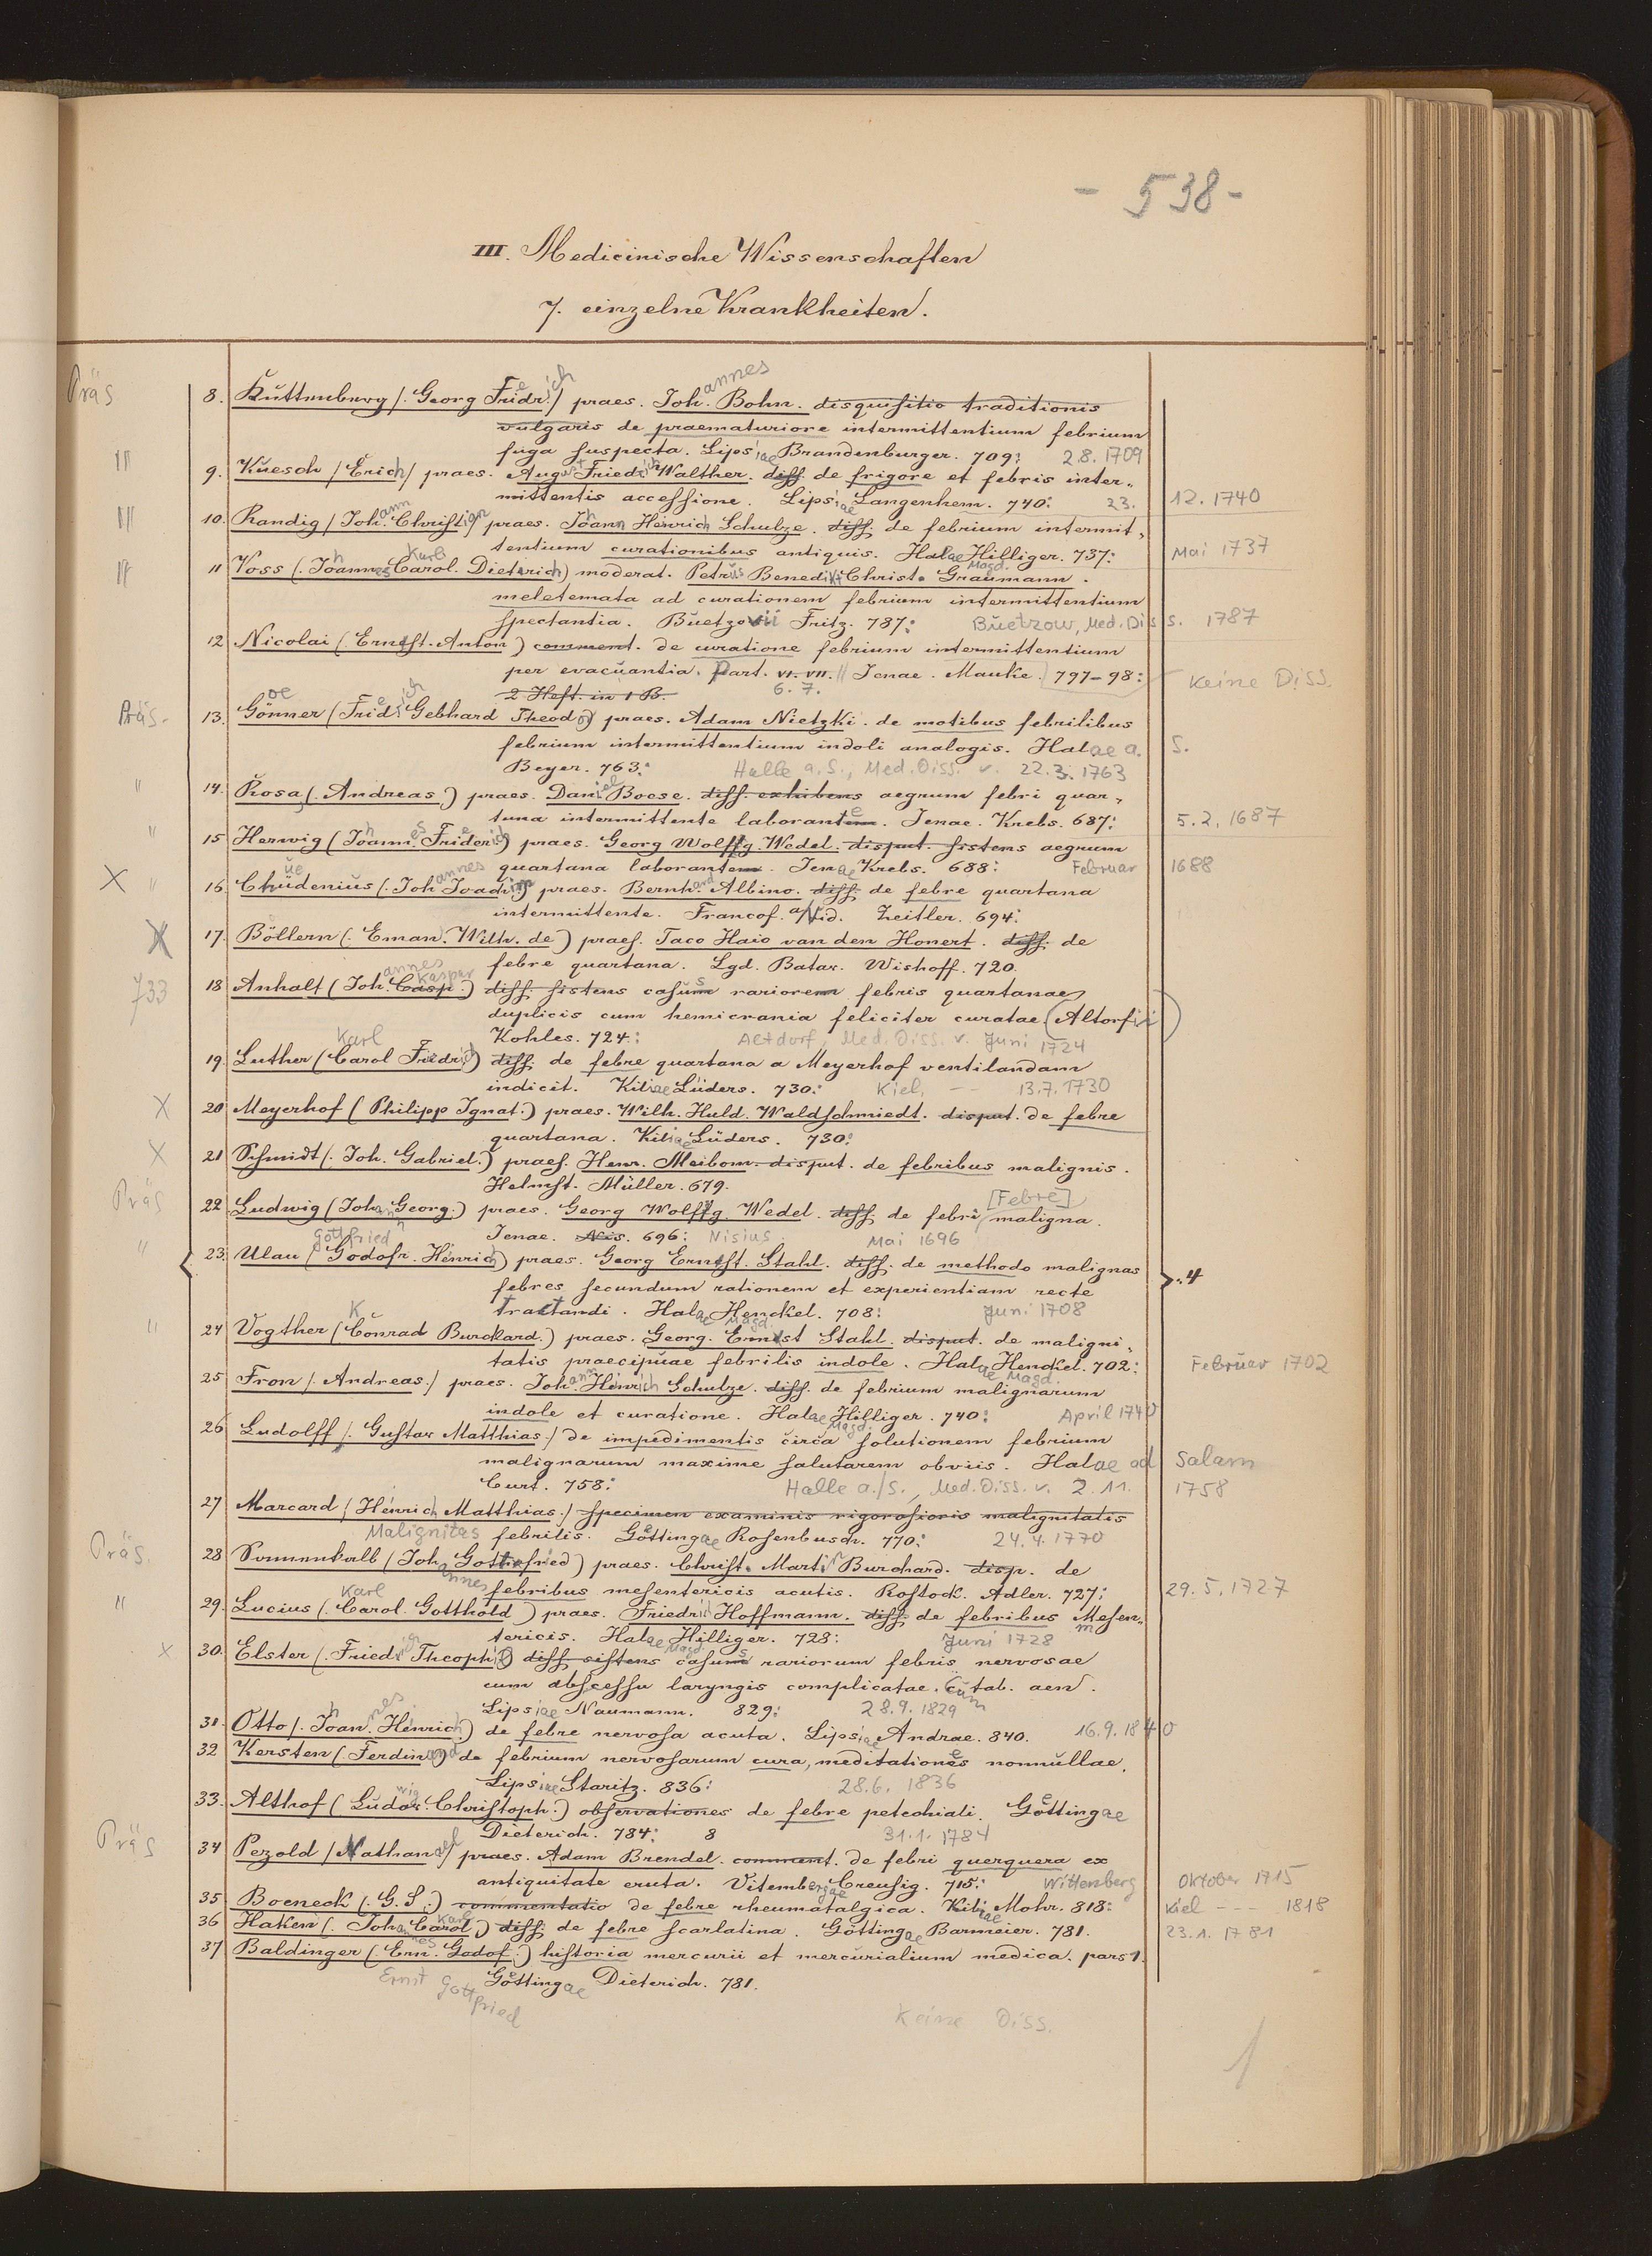 - 538 -
III. Medicinische Wissenschaften
7. einzelne Krankheiten.
Präs 8. Kuttenberg /. Georg Friedrich / praes. Johannes Bohn. disquisitio traditionis
vulgaris de praematuriore intermittentium febrium
fuga suspecta. Lipsiae Brandenburger. 709: 2.8. 1709
" 9. Kuesch / Erich / praes. August Friedrich Walther. diss. de frigore et febris inter-
mittentis accessione. Lipsiae Langenhem. 740: 23. 12. 1740
" 10. Randig / Johann Christian praes. Johann Heinrich Schulze. diss. de febrium intermit-
tentium curationibus antiquis. Halae Magd. Hilliger. 737: Mai 1737
" 11 Voss (. Johannes Karl Carol. Dieterich) moderat. Petrus Benedikt Christ. Graumann.
meletemata ad curationem febrium intermittentium
spectantia. Buetzovii Fritz. 787: Buetzow, Med. Diss. 1787
12 Nicolai (. Ernst. Anton) comment. de curatione febrium intermittentium
per evacuantia. Part. VI. VII. Jenae. Mauke. 797-98: Keine Diss.
2 Heft. in 1 B. 6. 7.
Präs. 13. Goenner (Friedrich Gebhard Theodor) praes. Adam Nietzki. de motibus febrilibus
febrium intermittentium indoli analogis. Halae a. S.
Beyer. 763: Halle a. S., Med. Diss. v. 22.3.1763
" 14. Rosa (. Andreas.) praes. Daniel Boese. diss. exhibens aegrum febri quar-
tana intermittente laborante. Jenae. Krebs. 687: 5.2.1687
" 15 Herwig (Johannes Friederich) praes. Georg Wolffg. Wedel. disput. sistens aegrum
quartana laborantem. Jenae Krebs. 688: Februar 1688
X " 16. Chuedenius (. Johannes Joachim) praes. Bernhard Albino. diss. de febre quartana
intermittente. Francof. a/Vid. Zeitler. 694:
X 17. Böllern (. Eman. Wilh. de) praes. Taco Haio van den Honert. diss. de
febre quartana. Lgd. Batav. Wishoff. 720.
733 18 Anhalt (Johannes Kaspar Casp.) diss. sistens casus rariorem febris quartanae
duplicis cum hemicrania feliciter curatae (Altorfii)
Kohles. 724: Altdorf, Med. Diss. v. Juni 1724
19. Luther (Karl Carol Friedrich) diss. de febre quartana a Meyerhof ventilandam
indicit. Kiliae Lüders. 730: Kiel, -- 13.7.1730
X 20 Meyerhof (Philipp Ignat.) praes. Wilh. Huld. Waldschmiedt. disput. de febre
quartana. Kiliae Lüders. 730:
X 21 Schmidt (. Joh. Gabriel.) praes. Henr. Meibom. disput. de febribus malignis.
Helmst. Müller. 679.
Präs 22. Ludwig (Johann Georg.) praes. Georg Wolffg. Wedel. diss. de febri [Febre] maligna.
Jenae. Nis. 696: Nisius Mai 1696
" 23. Ulau (Gottfried Godofr. Heinrich) praes. Georg Ernst. Stahl. diss. de methodo malignas
febres secundum rationem et experientiam recte
tractandi. Halae Magd. Henckel. 708: Juni 1708
" 24 Vogther (Konrad Burckard.) praes. Georg. Ernst Stahl. disput. de maligni-
tatis praecipuae febrilis indole. Halae Magd. Henckel. 702: Februar 1702
25 Fron /. Andreas./ praes. Johann Heinrich Schulze. diss. de febrium malignarum
indole et curatione. Halae Magd. Hilliger. 740: April 1740
26 Ludolff /. Gustav Matthias./ de impedimentis circa solutionem febrium
malignarum maxime salutarem obviis. Halae ad Salam
Curt. 758: Halle a./S., Med. Diss. v. 2.11. 1758
27 Marcard / Heinrich Matthias./ specimen examinis rigorosioris malignitatis
Malignitas febrilis. Goettingae Rosenbusch. 770: 24.4.1770
Präs. 28 Sonnenkalb (Johannes Gottfried) praes. Christ. Martin Burchard. disp. de
febribus mesentericis acutis. Rostock. Adler. 727: 29.5.1727
" 29. Lucius (. Karl Carol. Gotthold) praes. Friedrich Hoffmann. diss. de febribus Mesen-
tericis. Halae Magd. Hilliger. 728: Juni 1728
x 30. Elster (. Friedrich Theophil) diss. sistens casus rariorum febris nervosae
cum abscessu laryngis complicatae. Cum tab. aen.
Lipsiae Naumann. 829: 28.9.1829
31. Otto /. Johannes Heinrich) de febre nervosa acuta. Lipsiae Andrae. 840. 16.9.1840
32 Kersten (. Ferdinand) de febrium nervosarum cura, meditationes nonnullae.
Lipsiae Staritz. 836: 28.6. 1836
33. Althof (Ludwig Christoph.) observationes de febre petechiali. Goettingae
Dieterich. 784: 8 31.1.1784
Präs 34 Pezold / Nathanael / praes. Adam Brendel. comment. de febri querquera ex
antiquitate eruta. Vitembergae Creusig. 715: Wittenberg Oktober 1715
35 Boeneck (. G. S.) commentatio de febre rheumatalgica. Kiliae Mohr. 818: Kiel --- 1818
36 Haken (. Johannes Karl Carol.) diss. de febre scarlatina. Göttingae Barmeier. 781. 23.1.1781
37 Baldinger (. Ern. Godof.) historia mercurii et mercurialium medica. pars 1.
Ernst Gottfried Goettingae Dieterich. 781.
Keine Diss.
1